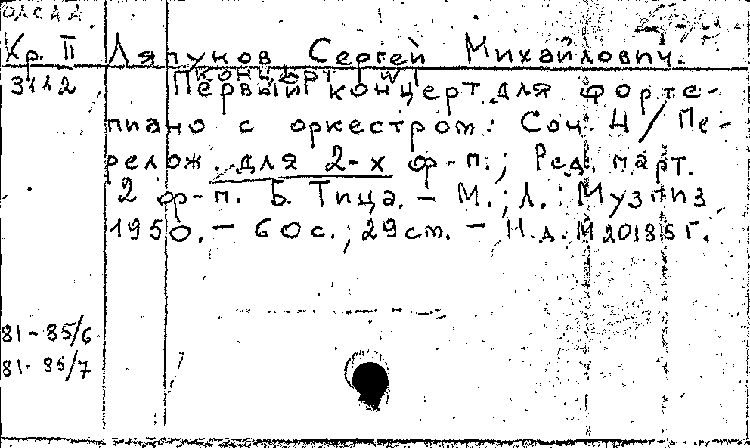 Хр. II Ляпунов Сергей Михайлович.
концерт №1
3112 Первый концерт для форте-
пиано с оркестром: Соч. 4/Пе-
релож. для 2-х ф-п.; Ред. парт.
2 ф-п. Б. Тица. – М.; Л.: Музгиз
1950. – 60 с.; 29 см. – Н.д. М20185Г.
81-85/6
81-85/7